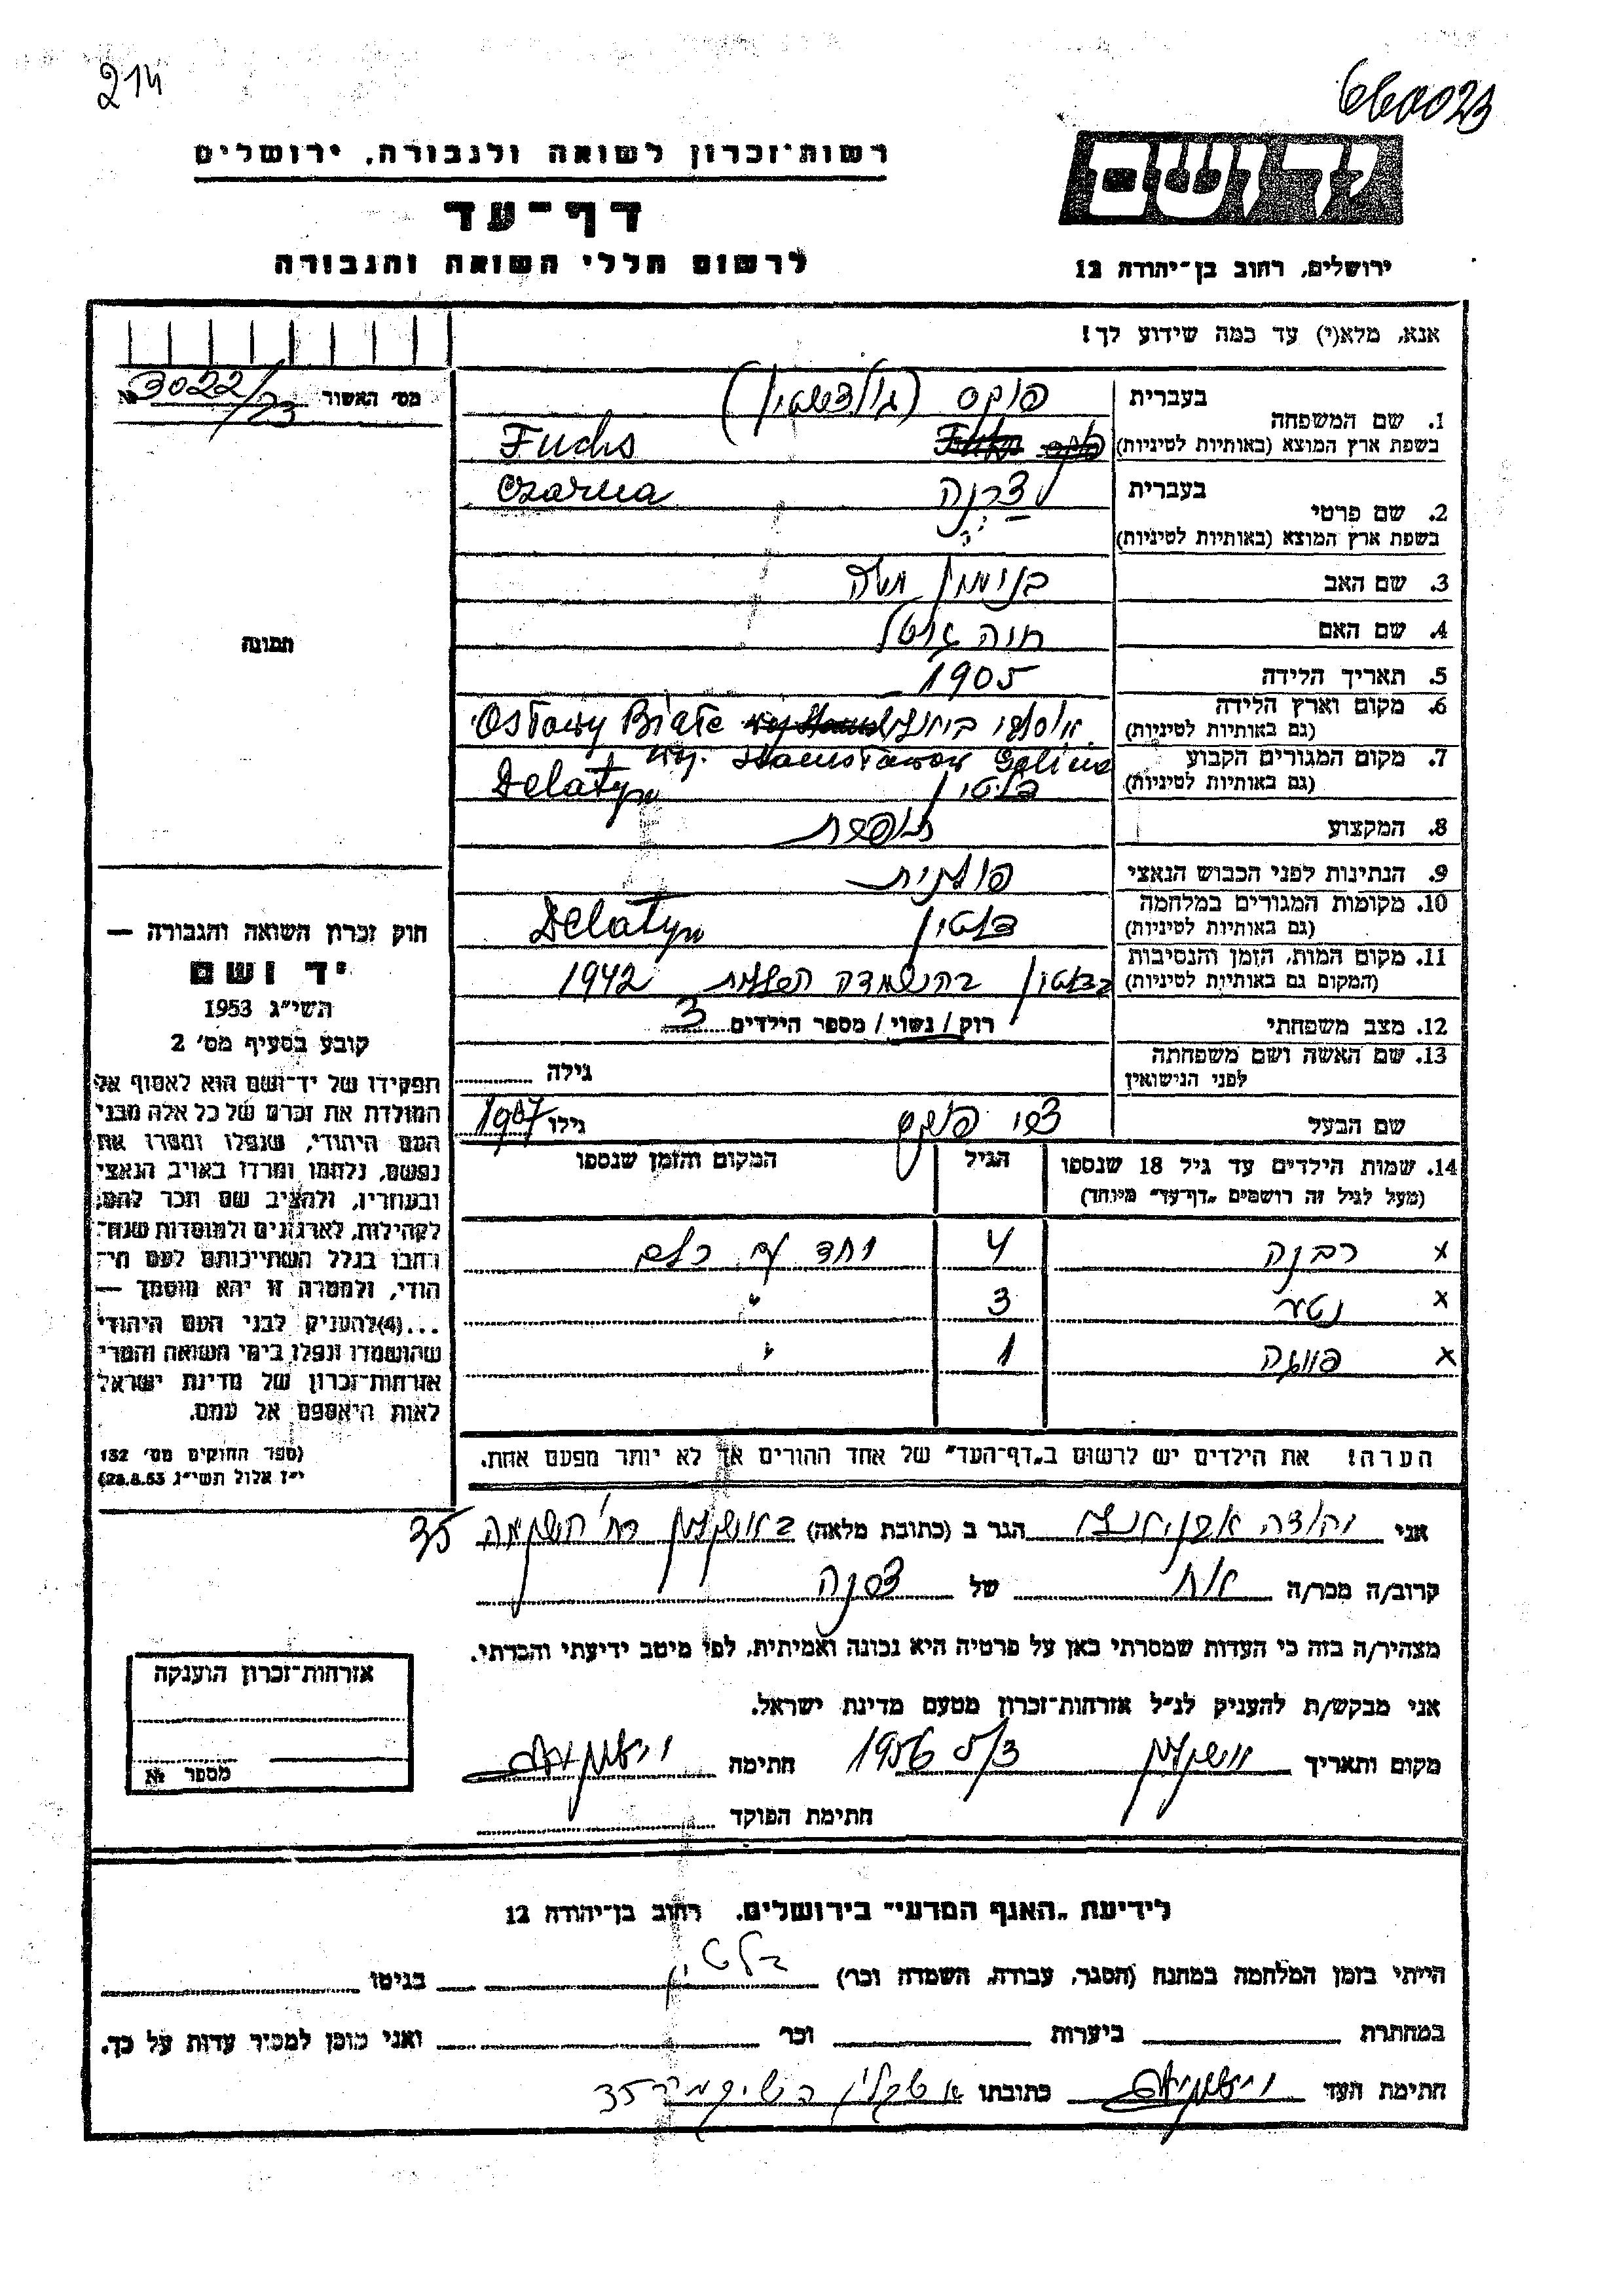 214
660023
רשות־זכרון לשואה ולגבורה, ירושלים
דף־עד
לרשום חללי השואה והגבורה
יד ושם
ירושלים, רחוב בן־יהודה 12
אנא, מלא(י) עד כמה שידוע לך!
מס׳ האשור № 3022/23
1. שם המשפחה
בעברית פוקס (גולדשטיין)
בשפת ארץ המוצא (באותיות לטיניות) Fuchs
2. שם פרטי
בעברית צ'רנה Czarna
בשפת ארץ המוצא (באותיות לטיניות)
3. שם האב בנימין משה
4. שם האם חוה
5. תאריך הלידה 1905
6. מקום וארץ הלידה
(גם באותיות לטיניות) Osławy Białe
woj. Stanisławow Galicia
7. מקום המגורים הקבוע
(גם באותיות לטיניות) דלטין Delatyn
8. המקצוע תופרת
9. הנתינות לפני הכבוש הנאצי פולנית
10. מקומות המגורים במלחמה
(גם באותיות לטיניות) דלטין Delatyn
11. מקום המות, הזמן והנסיבות
(המקום גם באותיות לטיניות) בדלטין בהשמדה 1942
12. מצב משפחתי רוק / נשוי / מספר הילדים 3
13. שם האשה ושם משפחתה
לפני הנישואין גילה
שם הבעל צבי פוקס גילו 1907
14. שמות הילדים עד גיל 18 שנספו
(מעל לגיל זה רושמים „דף־עד״ מיוחד)
הגיל
המקום והזמן שנספו
x רבנה 4 יחד עם כולם
x נטע 3 "
x 1 "
הערה! את הילדים יש לרשום ב„דף־העד״ של אחד ההורים אך לא יותר מפעם אחת.
תמונה
חוק זכרון השואה והגבורה —
יד ושם
תשי״ג 1953
קובע בסעיף מס׳ 2
תפקידו של יד־ושם הוא לאסוף אל
המולדת את זכרם של כל אלה מבני
העם היהודי, שנפלו ומסרו את
נפשם, נלחמו ומרדו באויב הנאצי
ובעוזריו, ולהציב שם וזכר להם,
לקהילות, לארגונים ולמוסדות שנח־
רבו בגלל השתייכותם לעם הי־
הודי, ולמטרה זו יהא מוסמך —
...(4)להעניק לבני העם היהודי
שהושמדו ונפלו בימי השואה והמרי
אזרחות־זכרון של מדינת ישראל
לאות היאספם אל עמם.
(ספר החוקים מס׳ 132
י״ז אלול תשי״ג 28.8.53)
אני יהודה הגר ב (כתובת מלאה) באשקלון רח׳ השקמה 35
קרוב/ה מכר/ה אח של צרנה
מצהיר/ה בזה כי העדות שמסרתי כאן על פרטיה היא נכונה ואמיתית, לפי מיטב ידיעתי והכרתי.
אני מבקש/ת להעניק לנ״ל אזרחות־זכרון מטעם מדינת ישראל.
מקום ותאריך אשקלון 3/5 1956 חתימה
חתימת הפוקד
אזרחות־זכרון הוענקה
מספר №
לידיעת „האגף המדעי״ בירושלים, רחוב בן־יהודה 12
הייתי בזמן המלחמה במחנה (הסגר, עבודה, השמדה וכו׳) דלטין בגיטו
במחתרת ביערות וכו׳ ואני מוכן למסור עדות על כך.
חתימת העד כתובתו אשקלון השיקמה 35